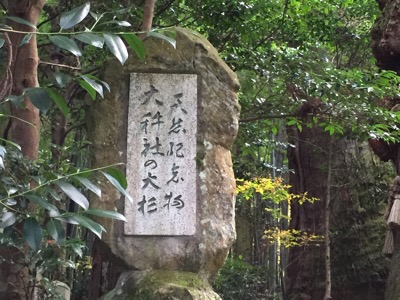 天然記念物
大科社の大杉